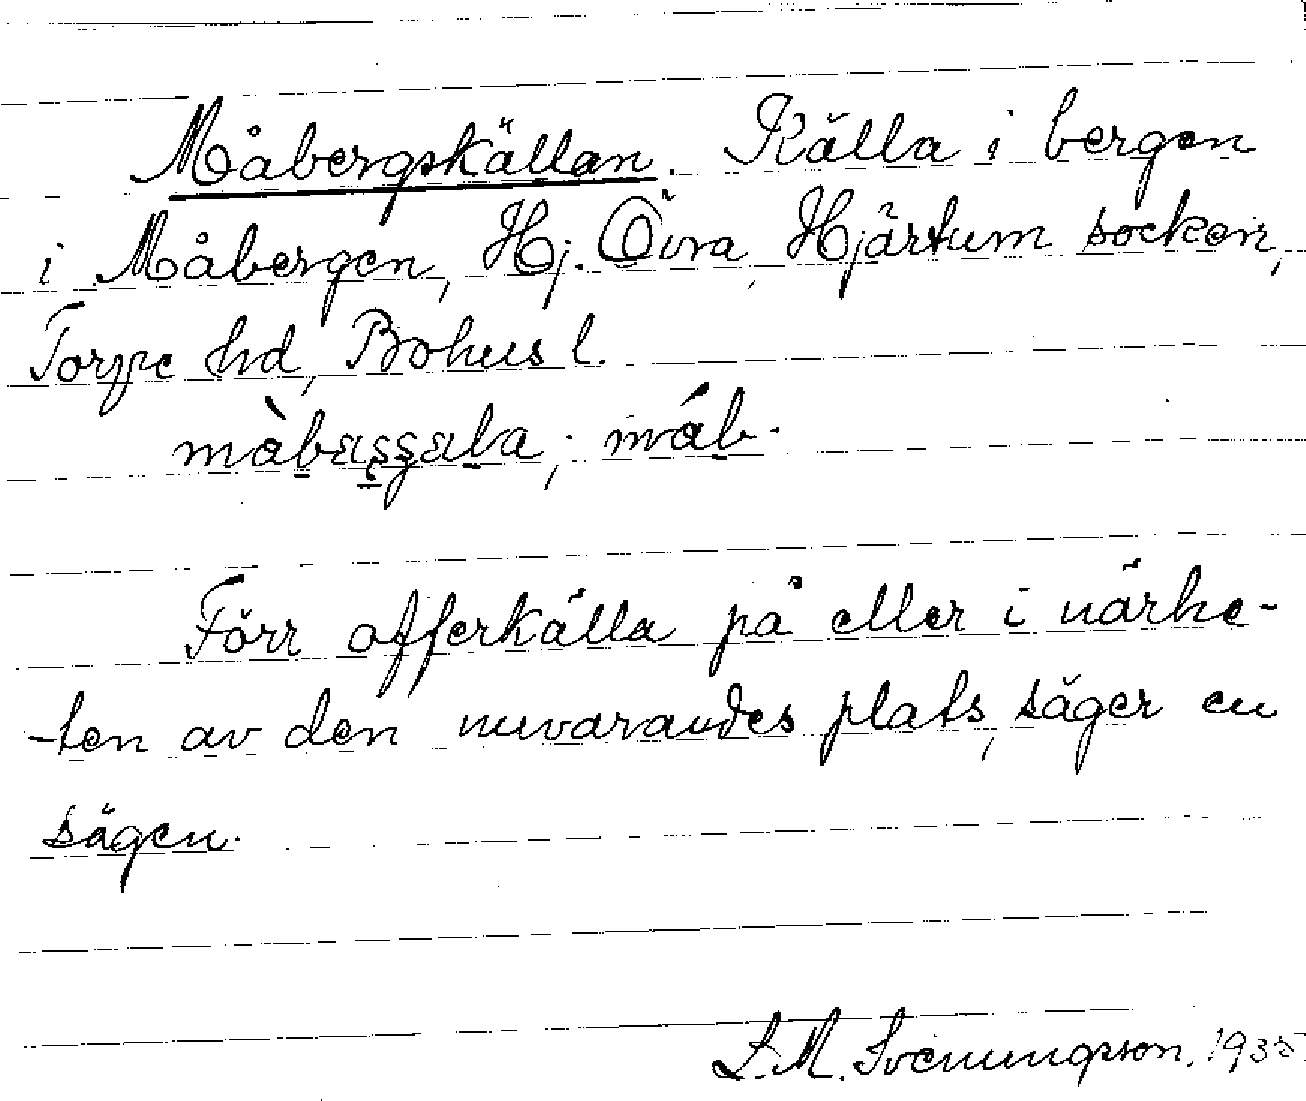 Måbergskällan. Källa i bergen
i Måbergen, Hj. Övra, Hjärtum socken,
Torpe hd, Bohusl.
Förr offerkälla på eller i närhe-
-ten av den nuvarandes plats, säger en
sägen.
S. M. Svenungsson. 1935